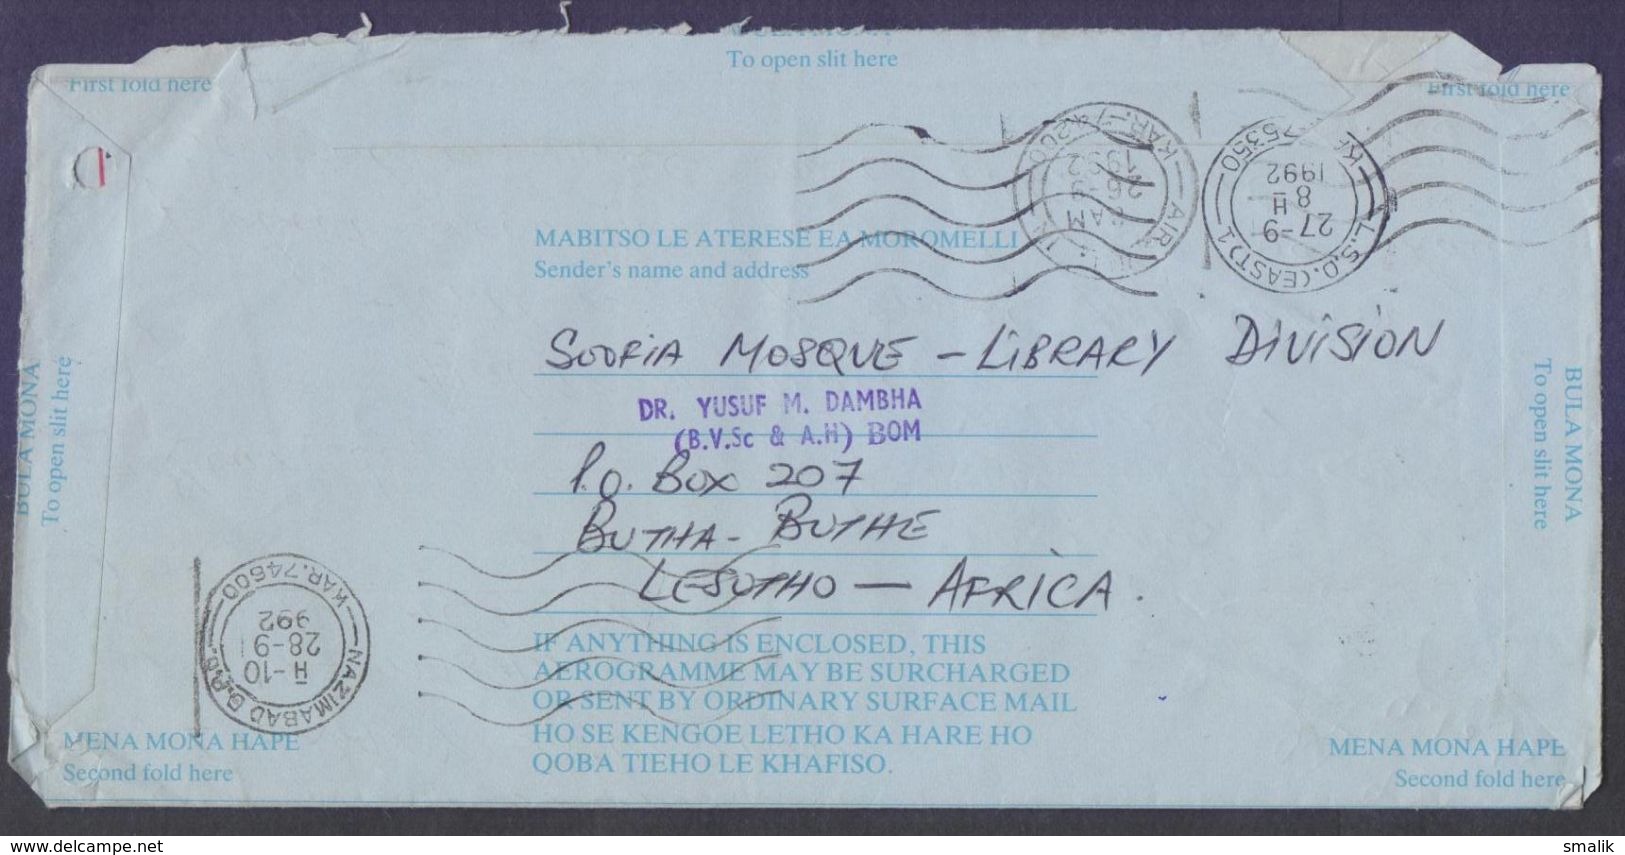 To open slit here
First fold here
First fold here
AIR
KAR.-74200
26-9
1992
L.S.D.(EAST)1
75350
27-9
8
H
1992
MABITSO LE ATERESE EA MOROMELLI
Sender's name and address
SOOFIA MOSQUE – LIBRARY DIVISION
DR. YUSUF M. DAMBHA
(B.V.Sc & A.H) BOM
P.O. BOX 207
BUTHA-BUTHE
LESOTHO – AFRICA.
BULA MONA
To open slit here
BULA MONA
To open slit here
NAZIMABAD
KAR.74600
H-10
28-9
992
IF ANYTHING IS ENCLOSED, THIS
AEROGRAMME MAY BE SURCHARGED
OR SENT BY ORDINARY SURFACE MAIL
HO SE KENGOE LETHO KA HARE HO
QOBA TIEHO LE KHAFISO.
MENA MONA HAPE
Second fold here
MENA MONA HAPE
Second fold here
delcampe.net
smalik